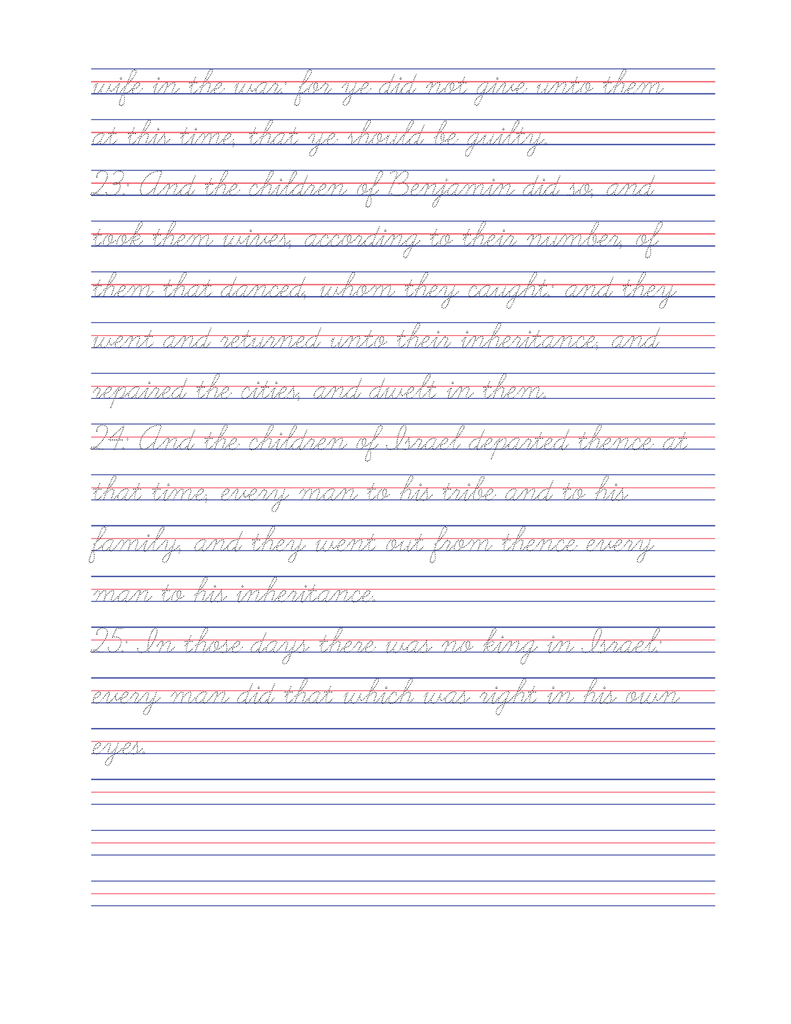 wife in the war: for ye did not give unto them
at this time, that ye should be guilty.
23: And the children of Benjamin did so, and
took them wives, according to their number, of
them that danced, whom they caught: and they
went and returned unto their inheritance, and
repaired the cities, and dwelt in them.
24: And the children of Israel departed thence at
that time, every man to his tribe and to his
family, and they went out from thence every
man to his inheritance.
25: In those days there was no king in Israel:
every man did that which was right in his own
eyes.